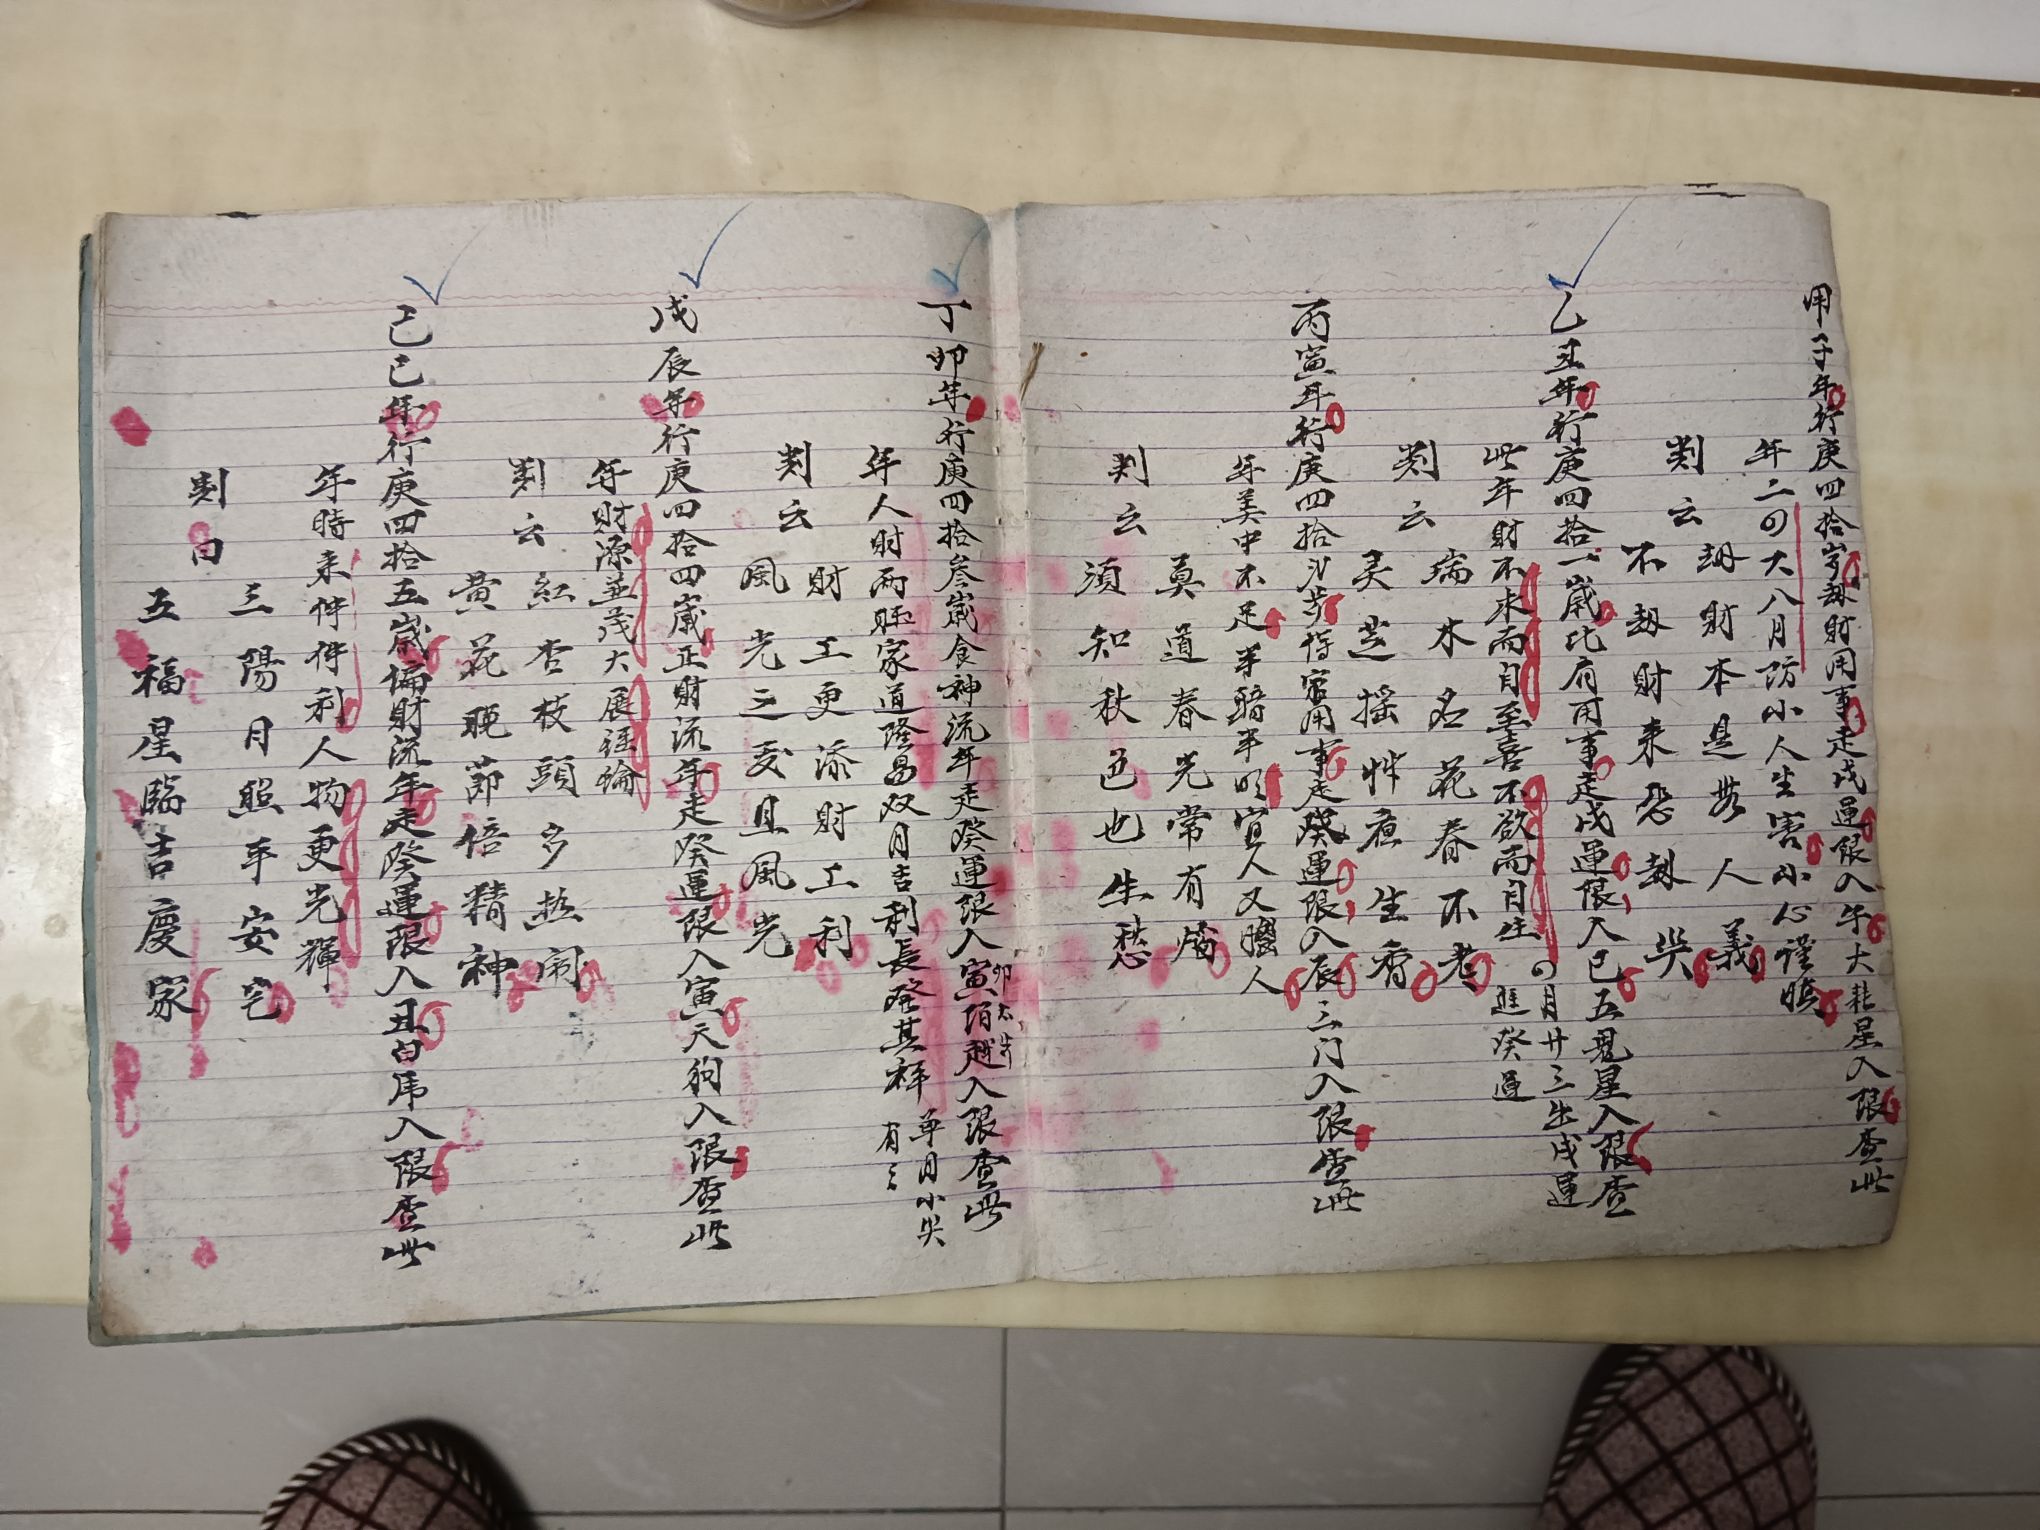 甲子年行庚四拾岁劫財用事走戊運限入午大耗星入限查此
年二四六八月防小人生害小心谨慎
判云
劫財本是無人義
不劫財来恐劫失
乙丑年行庚四拾一歲比肩用事走戊運限入巳五鬼星入限查
此年財不求而自至喜不欲而自生
四月廿三出戊運
進癸運
判云
瑞木名花春不老
灵芝瑶草煮生香
丙寅年行庚四拾二岁傷官用事走癸運限入辰三门入限查此
年美中不足半暗半明宜人又人
判云
莫道春光常有
須知秋色也生愁
丁卯年行庚四拾叁歲食神流年走癸運限入寅陌越入限查此
卯太岁
年人財两旺家道隆昌双月吉利長發其祥
单月小失
有之
判云
財工更添財工利
風光三友且風光
戊辰年行庚四拾四歲正財流年走癸運限入寅天狗入限查此
年財源並茂大展经纶
判云
紅杏枝頭多热闹
黄花晚節倍精神
己巳年行庚四拾五歲偏財流年走癸運限入丑白虎入限查此
年時来件件利人物更光輝
判曰
三陽月照平安宅
五福星臨吉慶家